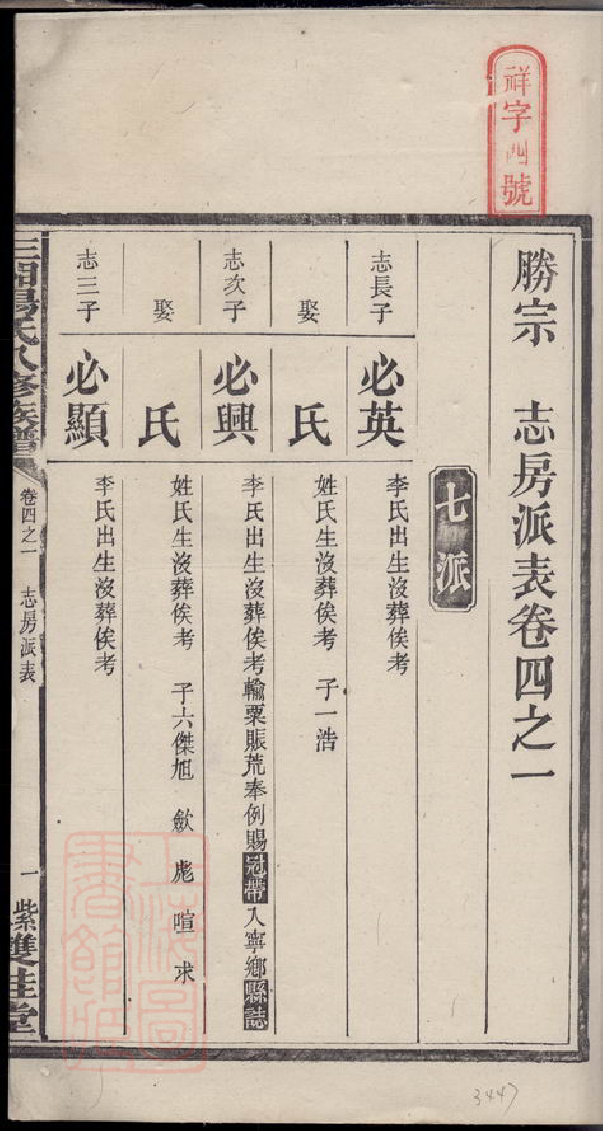 祥字四號
勝宗　志房派表卷四之一
七派
志長子
必英
李氏出生沒葬俟考
娶
氏
姓氏生沒葬俟考　子一浩
志次子
必興
李氏出生沒葬俟考輸粟賑荒奉例賜冠帶入寧鄉縣誌
娶
氏
姓氏生沒葬俟考　子六傑旭　歛　彪　喧　求
志三子
必顯
李氏出生沒葬俟考
氏八修族譜
卷四之一　志房派表
一
紫雙桂堂
上海圖書館藏
3447